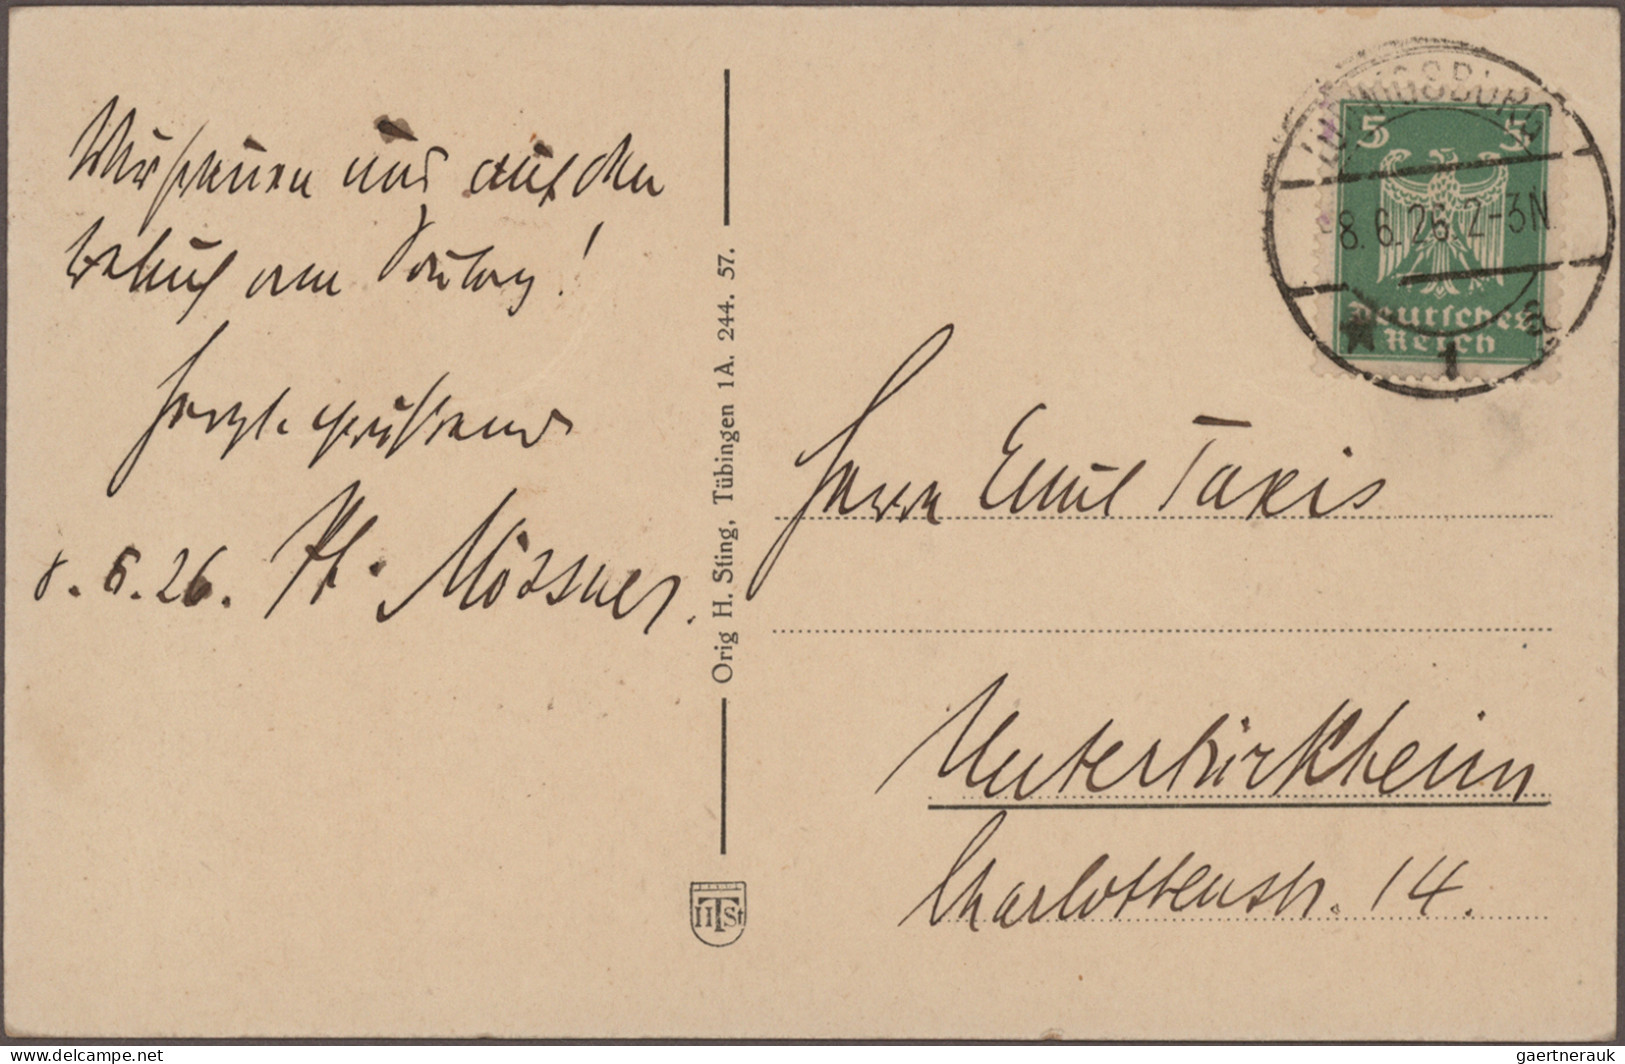 Wir freuen uns auf den
Besuch am Sonntag!
Herzl. grüßend
8.6.26. Pf. Mössner.
Orig H. Sting, Tübingen 1A. 244. 57.
HTSt
LUDWIGSBURG
8.6.26. 2-3N.
★ 1 a
5 5
Deutsches
Reich
Herrn Emil Taxis
Untertürkheim
Charlottenstr. 14.
www.delcampe.net
gaertnerauk